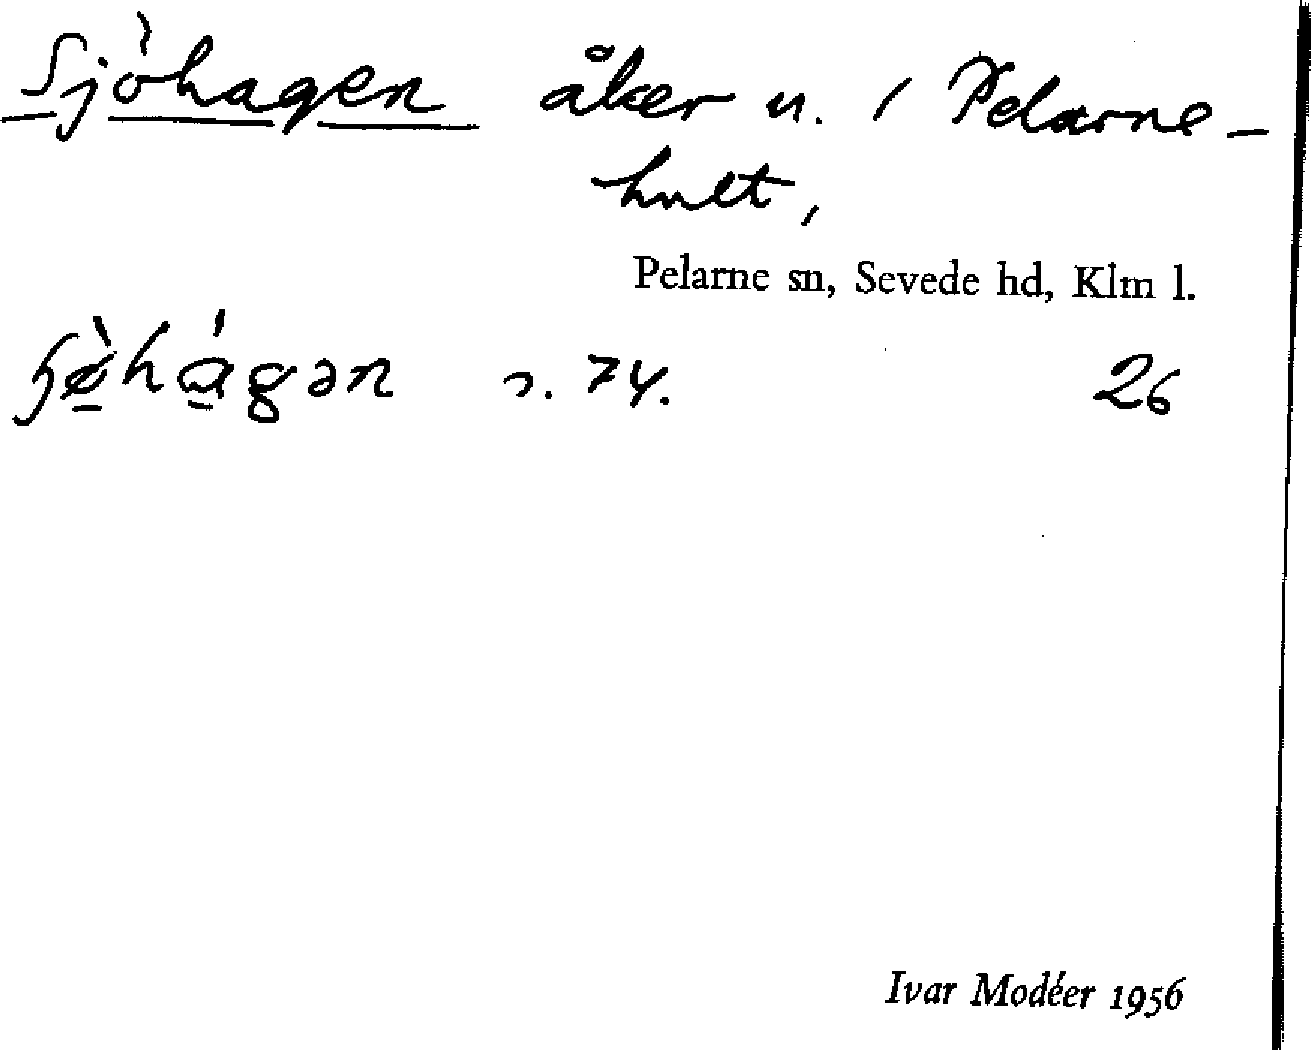 Sjöhagen åker n. i Pelarne-
hult,
Pelarne sn, Sevede hd, Klm l.
s. 74. 26
Ivar Modéer 1956